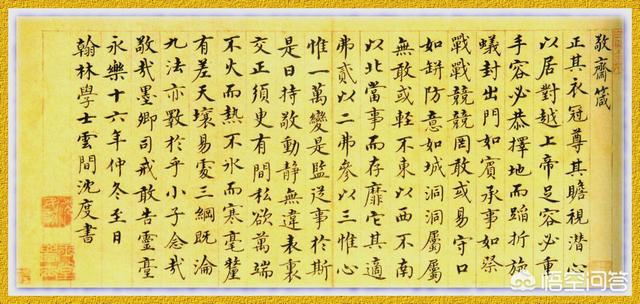 敬齋箴
正其衣冠尊其瞻視潛心
以居對越上帝足容必重
手容必恭擇地而蹈折旋
蟻封出門如賓承事如祭
戰戰兢兢罔敢或易守口
如缾防意如城洞洞屬屬
無敢或輕不東以西不南
以北當事而存靡它其適
弗貳以二弗參以三惟心
惟一萬變是監從事於斯
是曰持敬動靜無違表裏
交正須臾有間私欲萬端
不火而熱不氷而寒毫釐
有差天壤易處三綱既淪
九法亦斁於乎小子念哉
敬哉墨卿司戒敢告靈臺
永樂十六年仲冬至日
翰林學士雲間沈度書
悟空问答